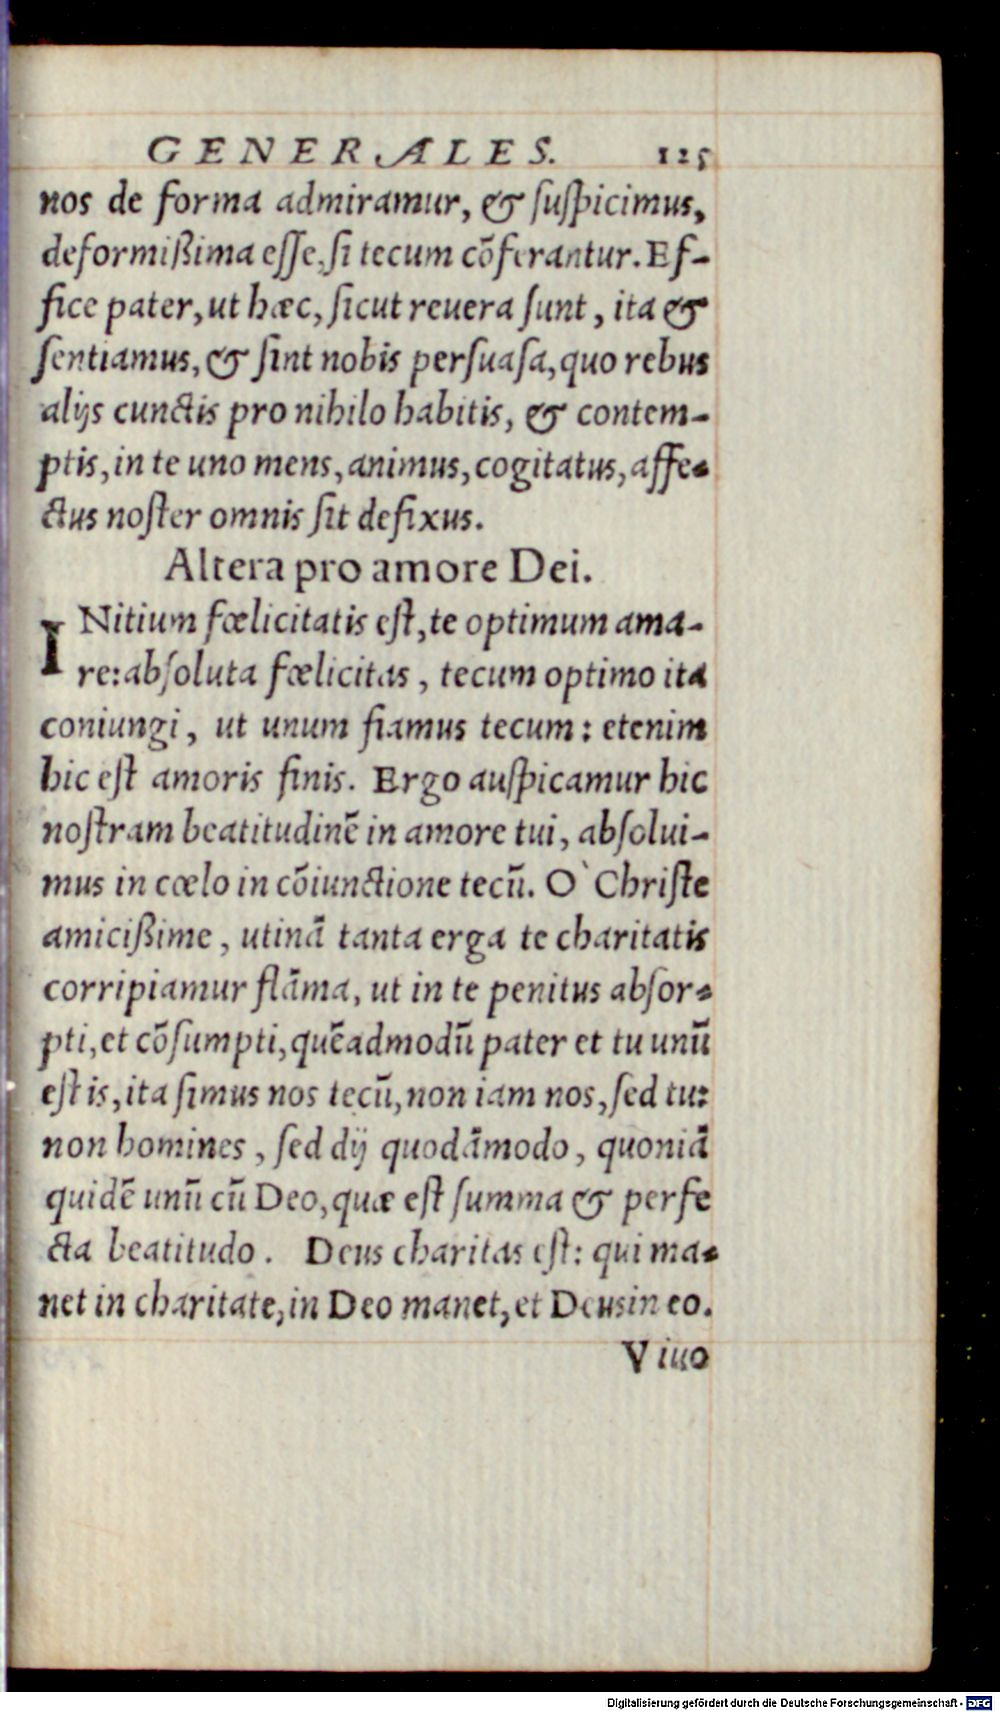 GENERALES. 125
nos de forma admiramur, & ſuſpicimus,
deformißima eſſe, ſi tecum cõferantur. Ef-
fice pater, ut hæc, ſicut reuera ſunt, ita &
ſentiamus, & ſint nobis perſuaſa, quo rebus
alijs cunctis pro nihilo habitis, & contem-
ptis, in te uno mens, animus, cogitatus, affe-
ctus noſter omnis ſit defixus.
Altera pro amore Dei.
INitium fœlicitatis eſt, te optimum ama-
re: abſoluta fœlicitas, tecum optimo ita
coniungi, ut unum fiamus tecum: etenim
hic eſt amoris finis. Ergo auſpicamur hic
noſtram beatitudinẽ in amore tui, abſolui-
mus in cœlo in cõiunctione tecũ. O` Chriſte
amicißime, utinã tanta erga te charitatis
corripiamur flãma, ut in te penitus abſor-
pti, et cõſumpti, quẽadmodũ pater et tu unũ
eſtis, ita ſimus nos tecũ, non iam nos, ſed tu:
non homines, ſed dij quodãmodo, quoniã
quidẽ unũ cũ Deo, quæ eſt ſumma & perfe
cta beatitudo. Deus charitas eſt: qui ma-
net in charitate, in Deo manet, et Deus in eo.
Viuo
Digitalisierung gefördert durch die Deutsche Forschungsgemeinschaft - DFG